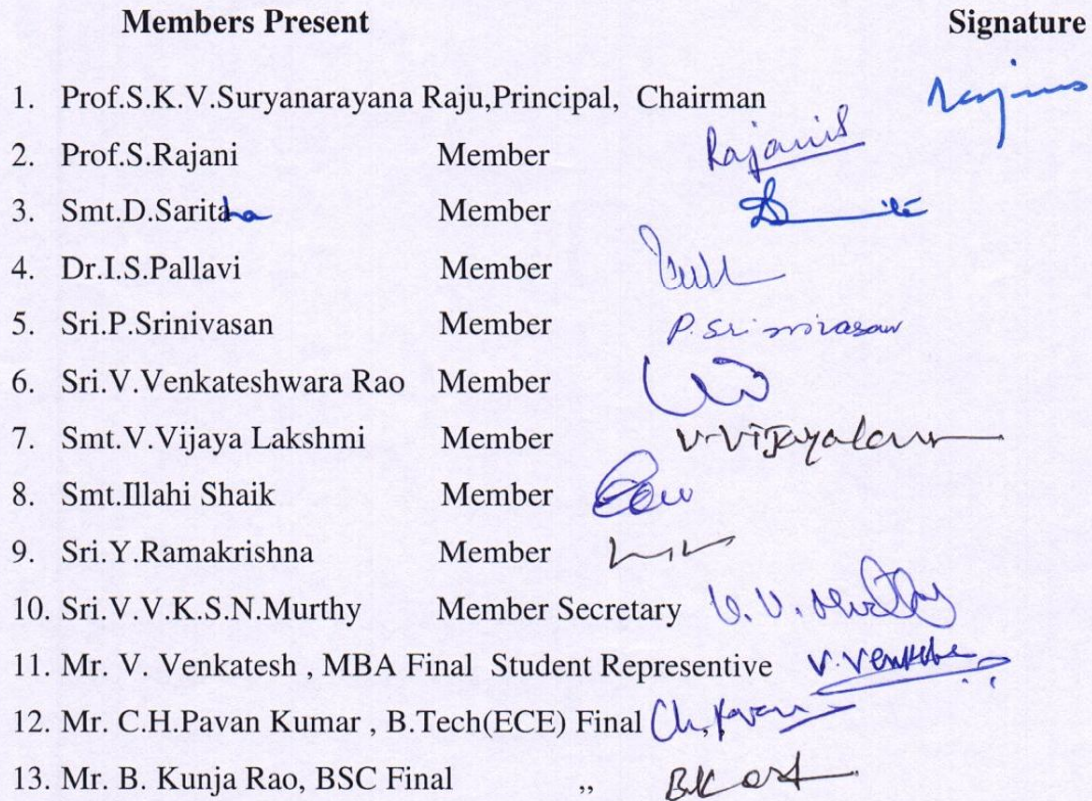 Members Present Signature
1. Prof.S.K.V.Suryanarayana Raju,Principal, Chairman
2. Prof.S.Rajani Member Rajani S
3. Smt.D.Saritha Member
4. Dr.I.S.Pallavi Member
5. Sri.P.Srinivasan Member P. Srinivasan
6. Sri.V.Venkateshwara Rao Member
7. Smt.V.Vijaya Lakshmi Member
8. Smt.Illahi Shaik Member
9. Sri.Y.Ramakrishna Member
10. Sri.V.V.K.S.N.Murthy Member Secretary V.V. Murthy
11. Mr. V. Venkatesh , MBA Final Student Representive V. Venkate
12. Mr. C.H.Pavan Kumar , B.Tech(ECE) Final Ch. Pavan
13. Mr. B. Kunja Rao, BSC Final ,,